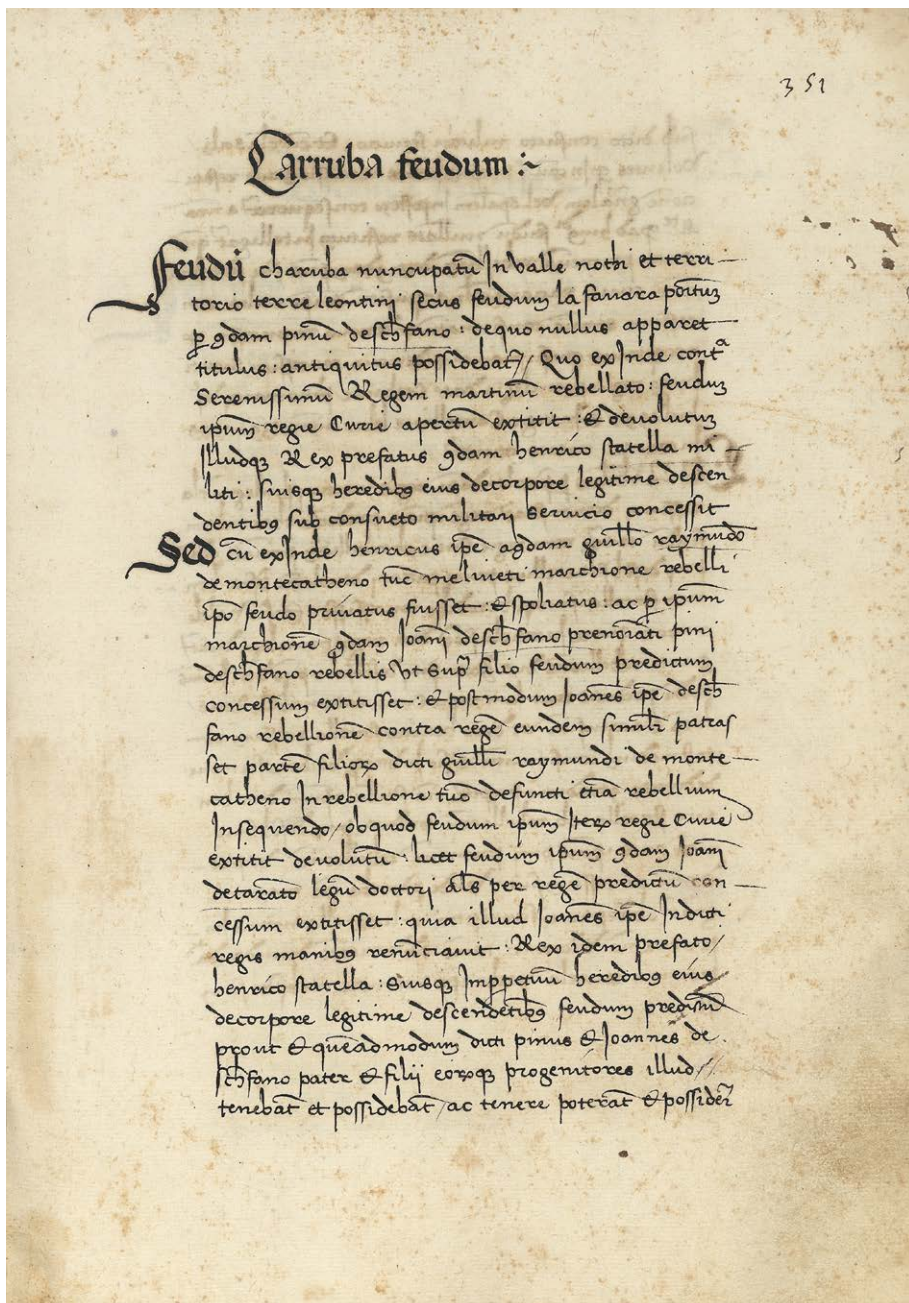 351
Carruba feudum :~
Feudū charuba nuncupatū In valle nothi et terri
torio terre leontinj secus feudum la favara positum
p qdam pinū deschīfano : de quo nullus apparet
titulus : antiquitus possidebat // Quo ex Inde contᵃ
Serenissimū Regem martinū rebellato : feuduz
ipūm regie Curie apertū extitit : & devolutuz
Illudqz Rex prefatus qdam henrico statella mi
liti : suisqz heredibꝯ eius de corpore legitime descen
dentibꝯ sub consueto militari servicio concessit
Sed cū ex Inde henricus ipē a qdam guillō raymūdo
de montecatheno tūc meliveti marchione rebelli
ipō feudo privatus fuisset : & spoliatus : ac p ipūm
marchionē qdam Joanī deschīfano prenoīati pini
deschīfano rebellis vt supᵃ filio feudum predictum
concessum extitisset : & postmodum Joanēs ipē deschī
fano rebellionē contra regē eundem simīlr patras
set partē filioꝝ dicti guillī raymundi de monte
catheno In rebellione tūc defuncti etīa rebellium
Insequendo / ob quod feudum ipūm Iteꝝ regie Curie
extitit devolutū : licet feudum ipūm qdam Joanī
de tarāto legū doctori als per regē predictū con
cessum extitisset : quia illud Joanēs ipē In dicti
regis manibꝯ renūciavit : Rex idem prefato /
henrico statella : suisqz Imppetuū heredibꝯ eius /
de corpore legitime descendētibꝯ feudum predictū
prout & quēadmodum dicti pinus & Joannēs de
schīfano pater & filij eoꝝqz progenitores illud //
tenebāt et possidebāt / ac tenere poterāt & possiderī